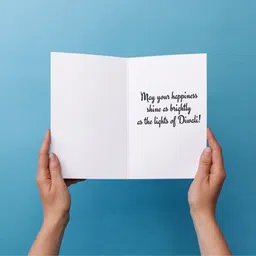 May your happiness
shine as brightly
as the lights of Diwali!